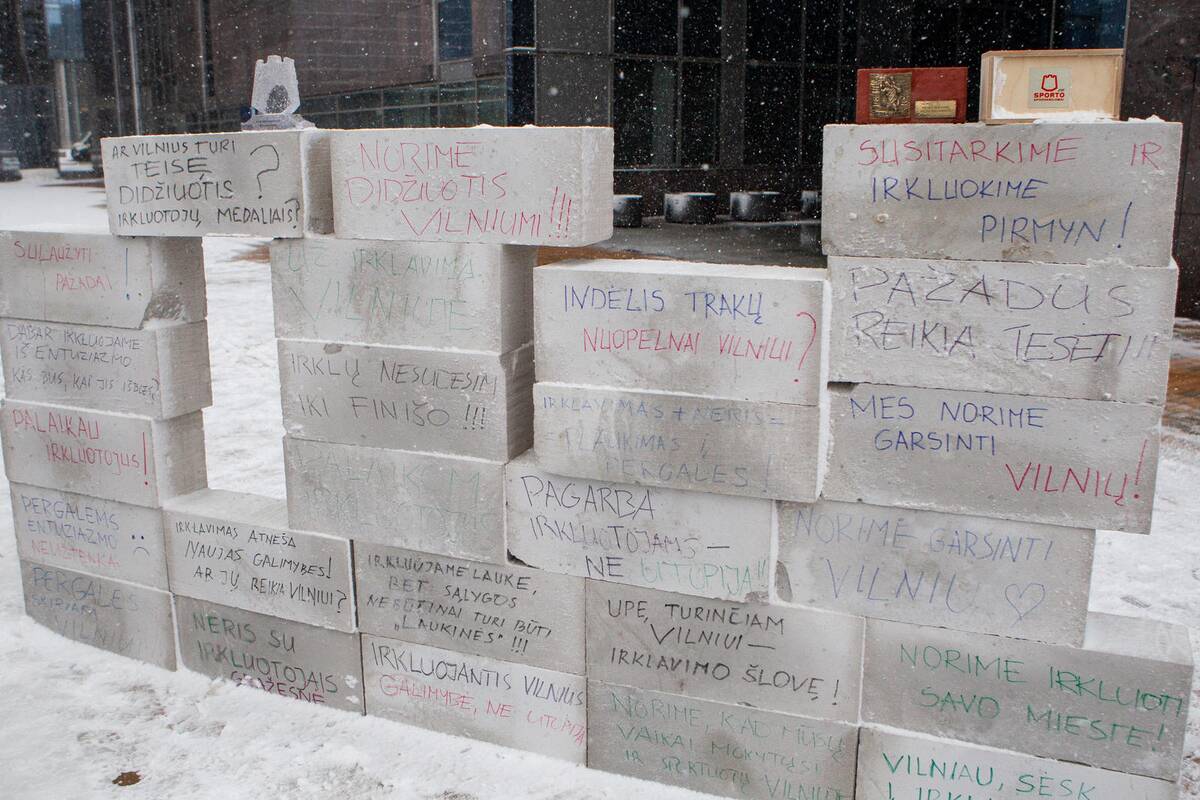 AR VILNIUS TURI
TEISĘ
DIDŽIUOTIS ?
IRKLUOTOJŲ, MEDALIAIS?
NORIME
DIDŽIUOTIS
VILNIUMI!!!
SPORTO
SUSITARKIME IR
IRKLUOKIME
PIRMYN!
SULAUŽYTI
PAŽADAI !
UŽ IRKLAVIMĄ
VILNIUJE
INDĖLIS TRAKŲ
NUOPELNAI VILNIUI?
PAŽADUS
REIKIA TESĖTI!!
DABAR IRKLUOJAME
IŠ ENTUZIAZMO
KAS BUS, KAI JIS IŠBLĖS?
IRKLŲ NESUDĖSIM
IKI FINIŠO !!!
IRKLAVIMAS + NERIS =
= PLAUKIMAS Į
PERGALES !
MES NORIME
GARSINTI
VILNIŲ!
PALAIKAU
IRKLUOTOJUS!
PAGARBA
IRKLUOTOJAMS –
NE UTOPIJA!!
NORIME GARSINTI
VILNIŲ ♡
PERGALĖMS
ENTUZIAZMO
NEUŽTENKA :(
IRKLAVIMAS ATNEŠA
NAUJAS GALIMYBES!
AR JŲ REIKIA VILNIUI?
IRKLUOJAME LAUKE,
BET SĄLYGOS
NEBŪTINAI TURI BŪTI
„LAUKINĖS" !!!
UPE, TURINČIAM
VILNIUI –
IRKLAVIMO ŠLOVĘ!
NORIME IRKLUOTI
SAVO MIESTE!
PERGALĖS
VILNIUI
NERIS SU
IRKLUOTOJAIS
GRAŽESNĖ
IRKLUOJANTIS VILNIUS
GALIMYBĖ, NE UTOPIJA
NORIME, KAD MŪSŲ
VAIKAI MOKYTŲSI
IR SPORTUOTŲ VILNIUJE
VILNIAU, SĖSK
Į IRKL